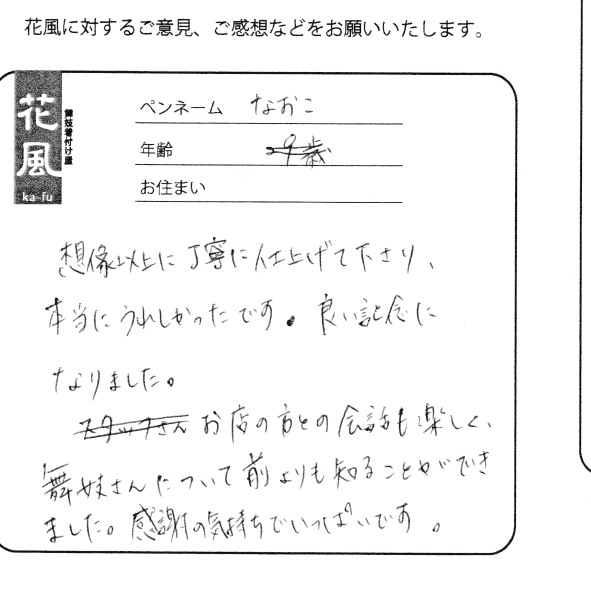 花風に対するご意見、ご感想などをお願いいたします。
花風
舞妓着付け屋
ka-fu
ペンネーム なおこ
年齢 29歳
お住まい
想像以上に丁寧に仕上げて下さり、
本当にうれしかったです。良い記念に
なりました。
スタッフさん お店の方との会話も楽しく、
舞妓さんについて前よりも知ることができ
ました。感謝の気持ちでいっぱいです。